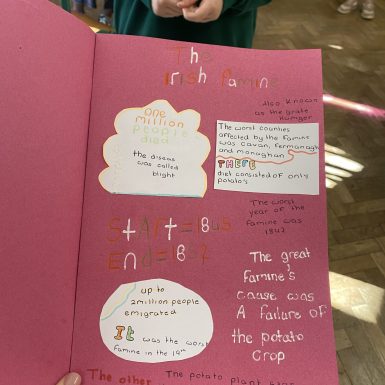 The
Irish Famine
Also Known
as the grate
Hunger
ONE
million
people
died
the diseas
was called
blight
The worst counties
affected by the Famine
was Cavan, Fermanagh
and monaghan
THERE
diet consisted of only
potato's
The worst
year of the
Famine was
1847
START=1845
END=1852
The great
famine's
cause was
A failure of
the potato
crop
up to
2million people
emigrated
It was the worst
famine in the 19th
The other
The potato plant